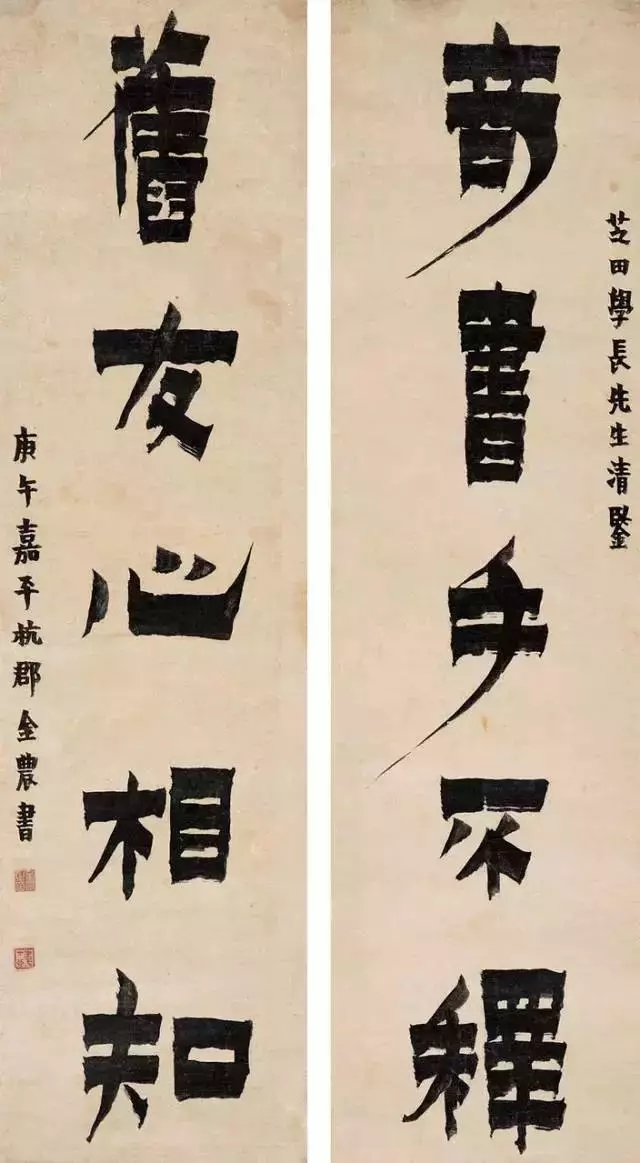 芝田學長先生清鑒
竒書手不釋
舊友心相知
庚午嘉平杭郡金農書